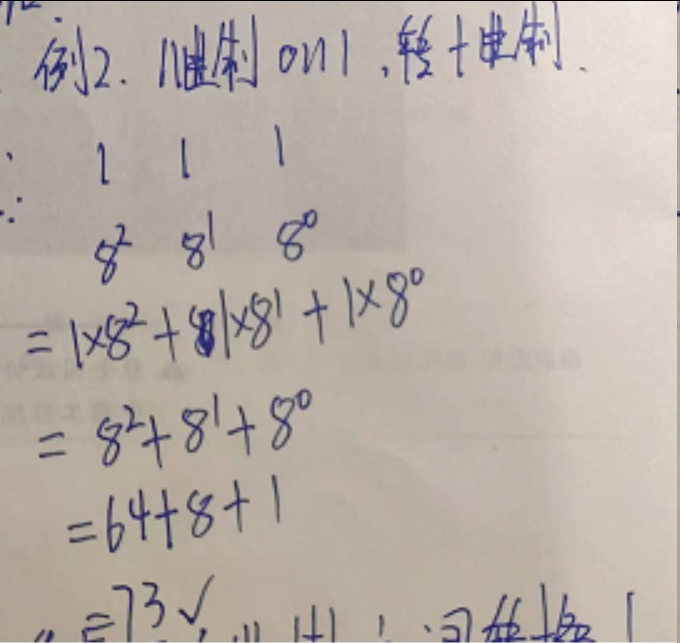 例2. 八进制 0111,转十进制.
1 1 1
8² 8¹ 8⁰
= 1×8² + 1×8¹ + 1×8⁰
= 8² + 8¹ + 8⁰
= 64 + 8 + 1
= 73 ✓